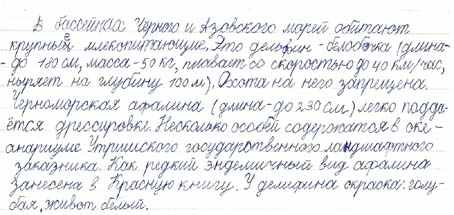 В бассейнах Черного и Азовского морей обитают
крупные млекопитающие. Это дельфин-белобочка (длина-
- до 180 см, масса - 50 кг, плавает со скоростью до 40 км/час,
ныряет на глубину 100 м). Охота на него запрещена.
Черноморская афалина (длина - до 230 см.) легко подда-
ётся дрессировке. Несколько особей содержатся в оке-
анариуме Утришского государственного ландшафтного
заказника. Как редкий эндемичный вид афалина
занесена в Красную книгу. У дельфина окраска: голу-
бая, живот белый.